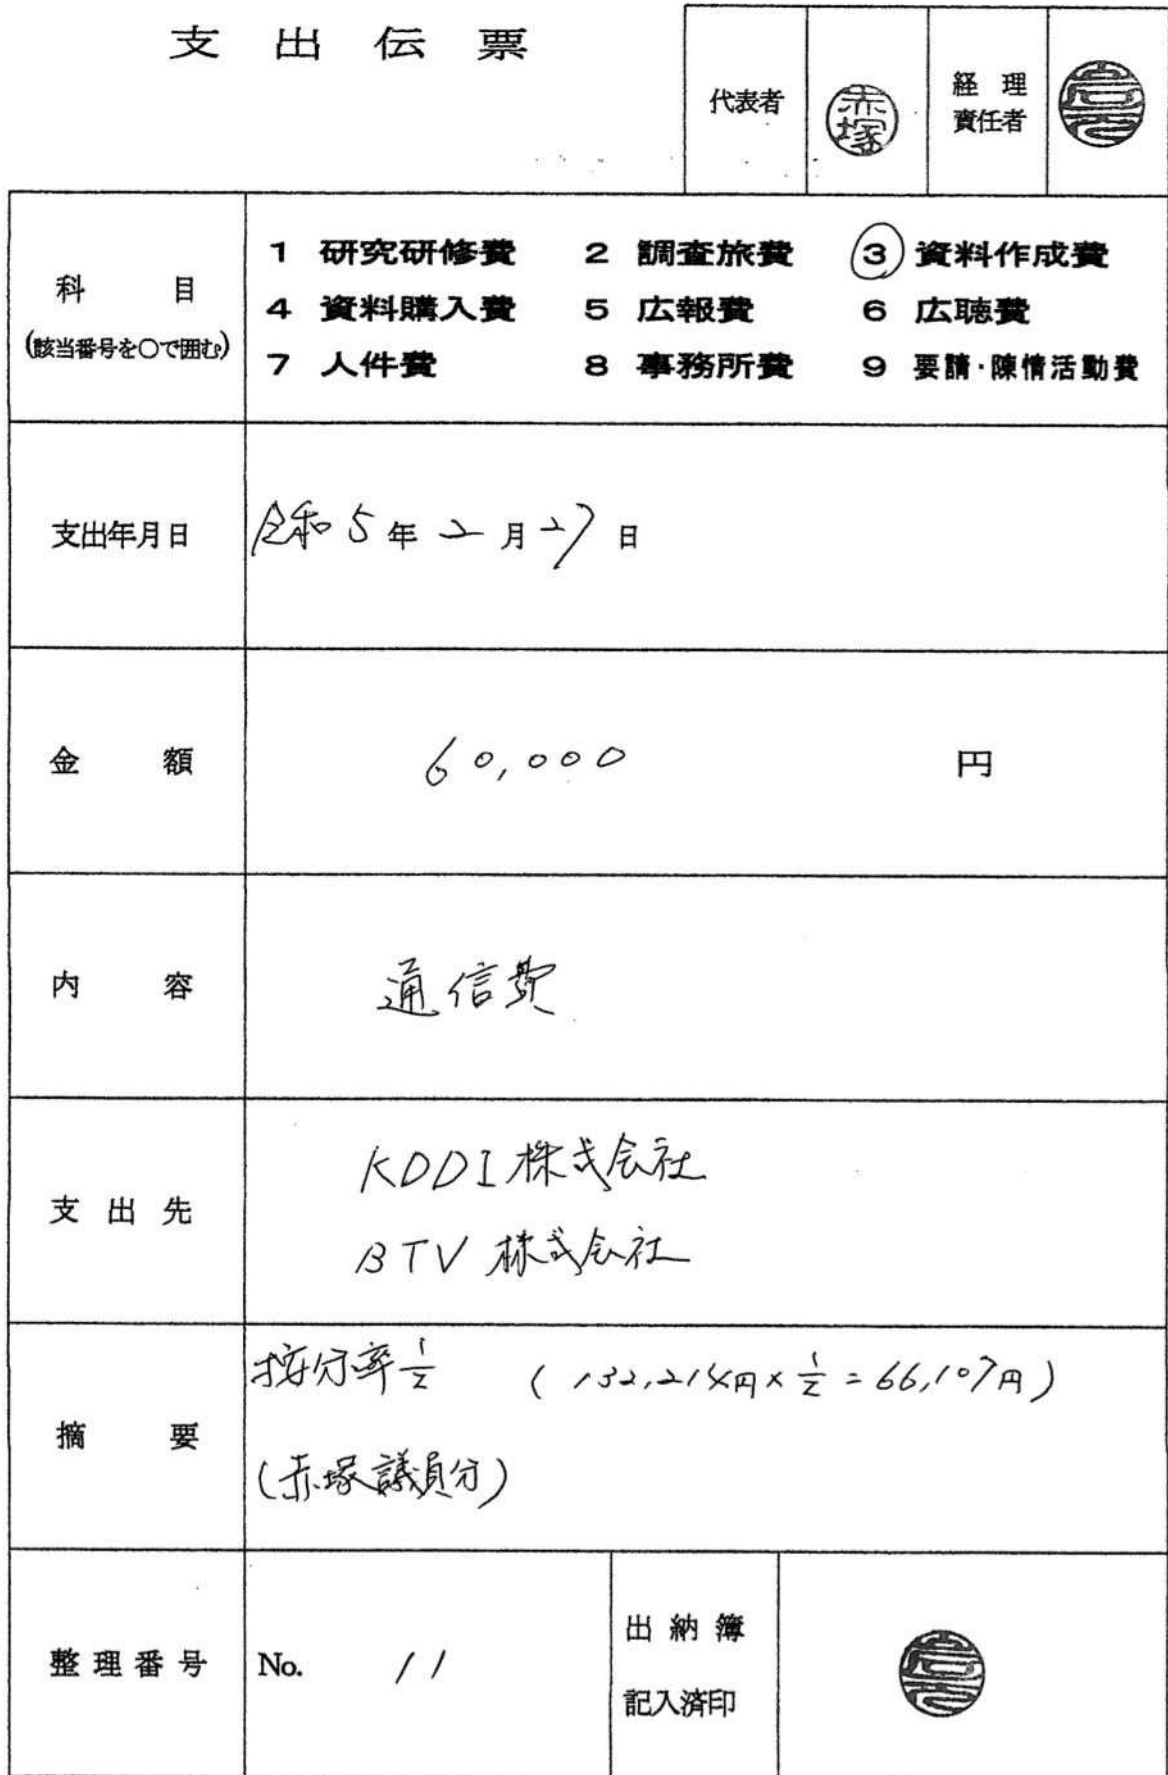 支出伝票
代表者
赤塚
経理
責任者
科目
(該当番号を○で囲む)
1 研究研修費 2 調査旅費 3 資料作成費
4 資料購入費 5 広報費 6 広聴費
7 人件費 8 事務所費 9 要請・陳情活動費
支出年月日
令和5年2月27日
金額
60,000 円
内容
通信費
支出先
KDDI株式会社
BTV株式会社
摘要
按分率1/2 (132,214円×1/2=66,107円)
(赤塚議員分)
整理番号
No. 11
出納簿
記入済印